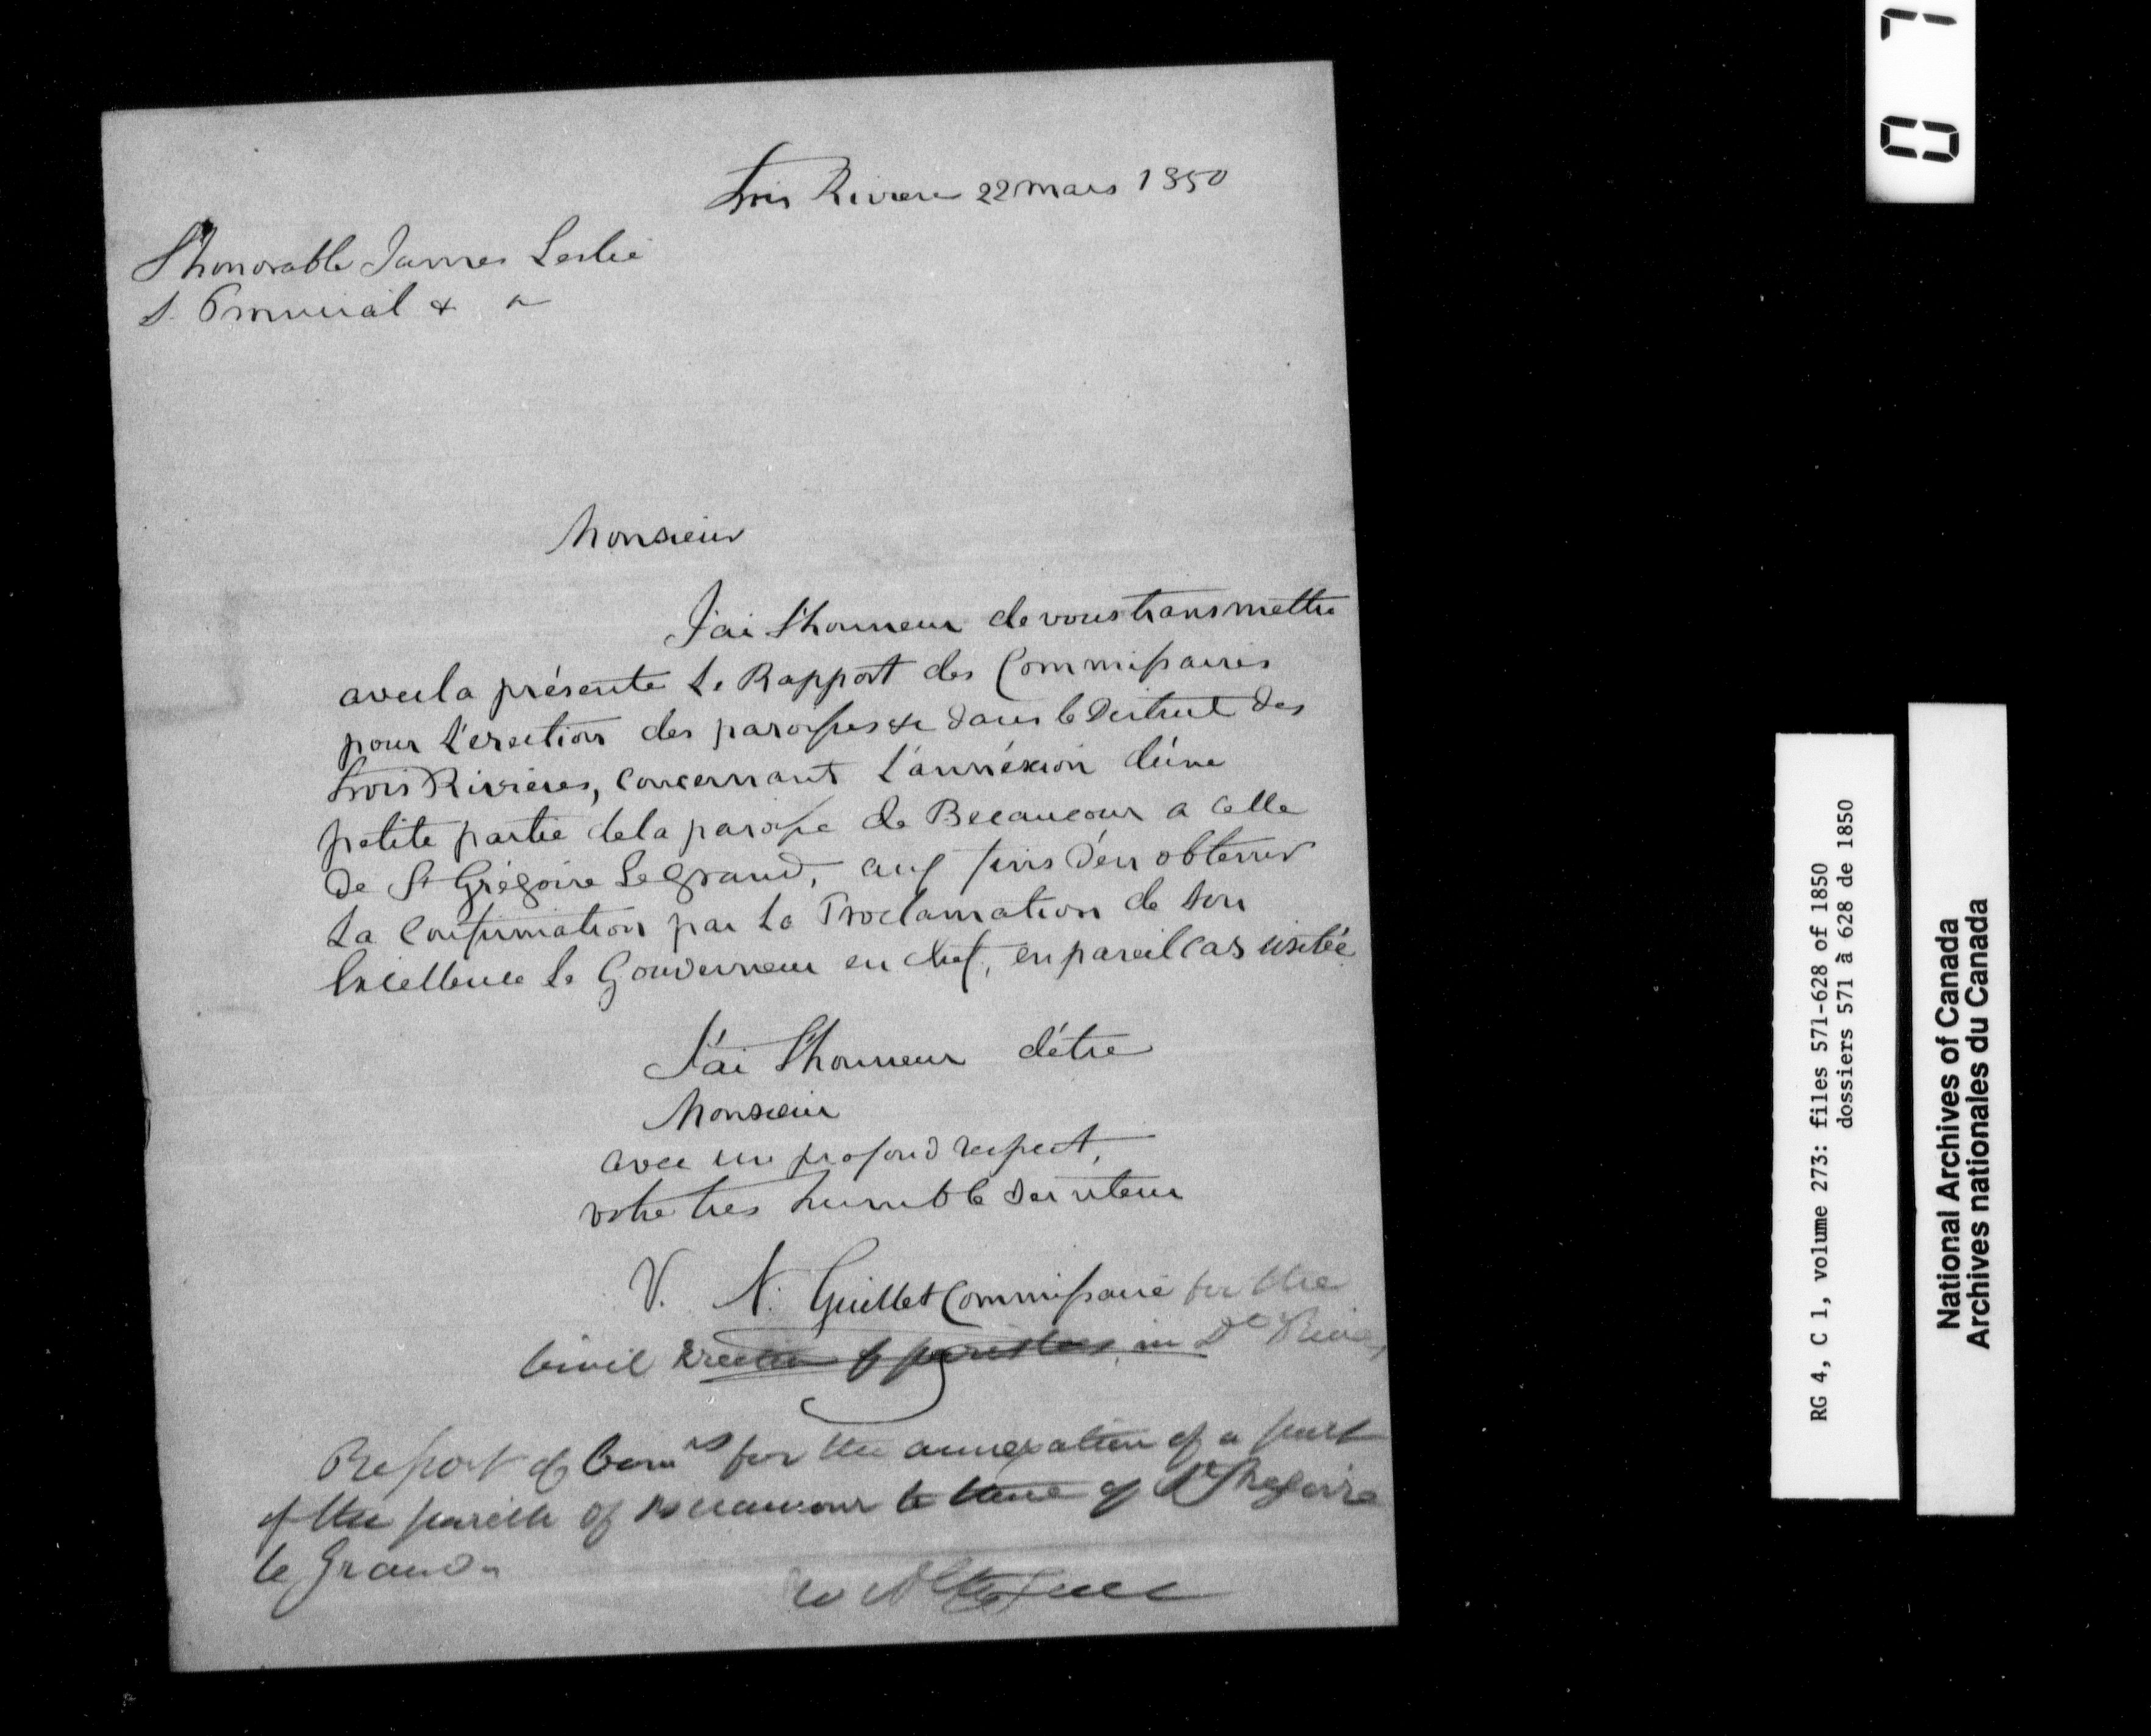 Trois Rivieres 22 mars 1850
L'honorable James Leslie
S. Provincial &
Monsieur
J'ai l'honneur de vous transmettre
avec la présente le Rapport des Commissaires
pour l'erection des paroisses &c dans le District des
Trois Rivieres, concernant l'annéxion d'une
petite partie de la paroisse de Becancour a celle
de St Grégoire Le grand, aux fins d'en obtenir
la Confirmation par la Proclamation de son
Excellence le Gouverneur en chef, en pareil cas usitée
J'ai l'honneur d'être
Monsieur
avec un profond respect,
votre tres humble serviteur
V. N. Guillet Commissaire for the
Civil Erection of parishes in
Report of Comrs for the annexation of a part
of the parish of Becancour to that of St Gregoire
le Grand
RG 4, C 1, volume 273: files 571-628 of 1850
dossiers 571 à 628 de 1850
National Archives of Canada
Archives nationales du Canada